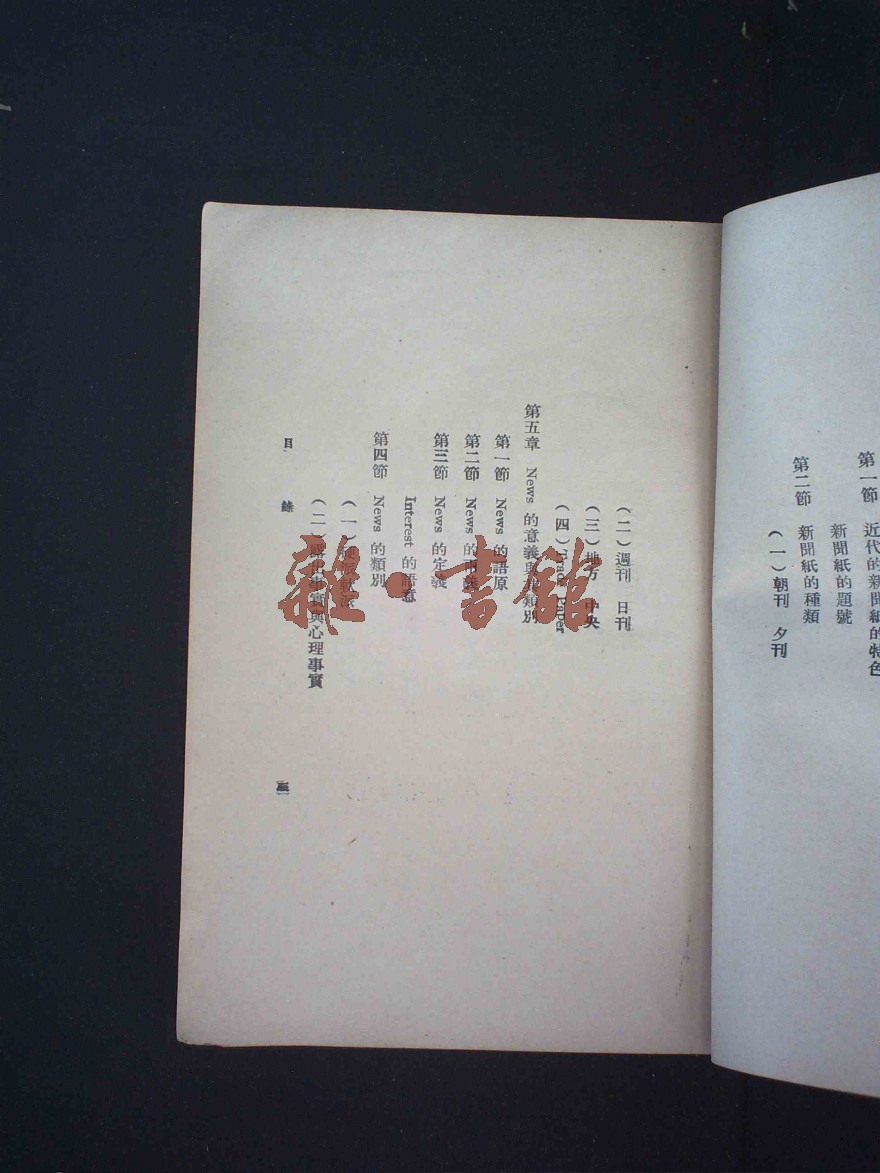 第一節 近代的新聞紙的特色
新聞紙的題號
第二節 新聞紙的種類
(一)朝刊 夕刊
(二)週刊 日刊
(三)地方 中央
(四) Paper
第五章 News 的意義與 類別
第一節 News 的語原
第二節 News 的
第三節 News 的定義
Interest 的語意
第四節 News 的類別
(一) 派
(二)露出事實與心理事實
目 錄
三
雜·書館